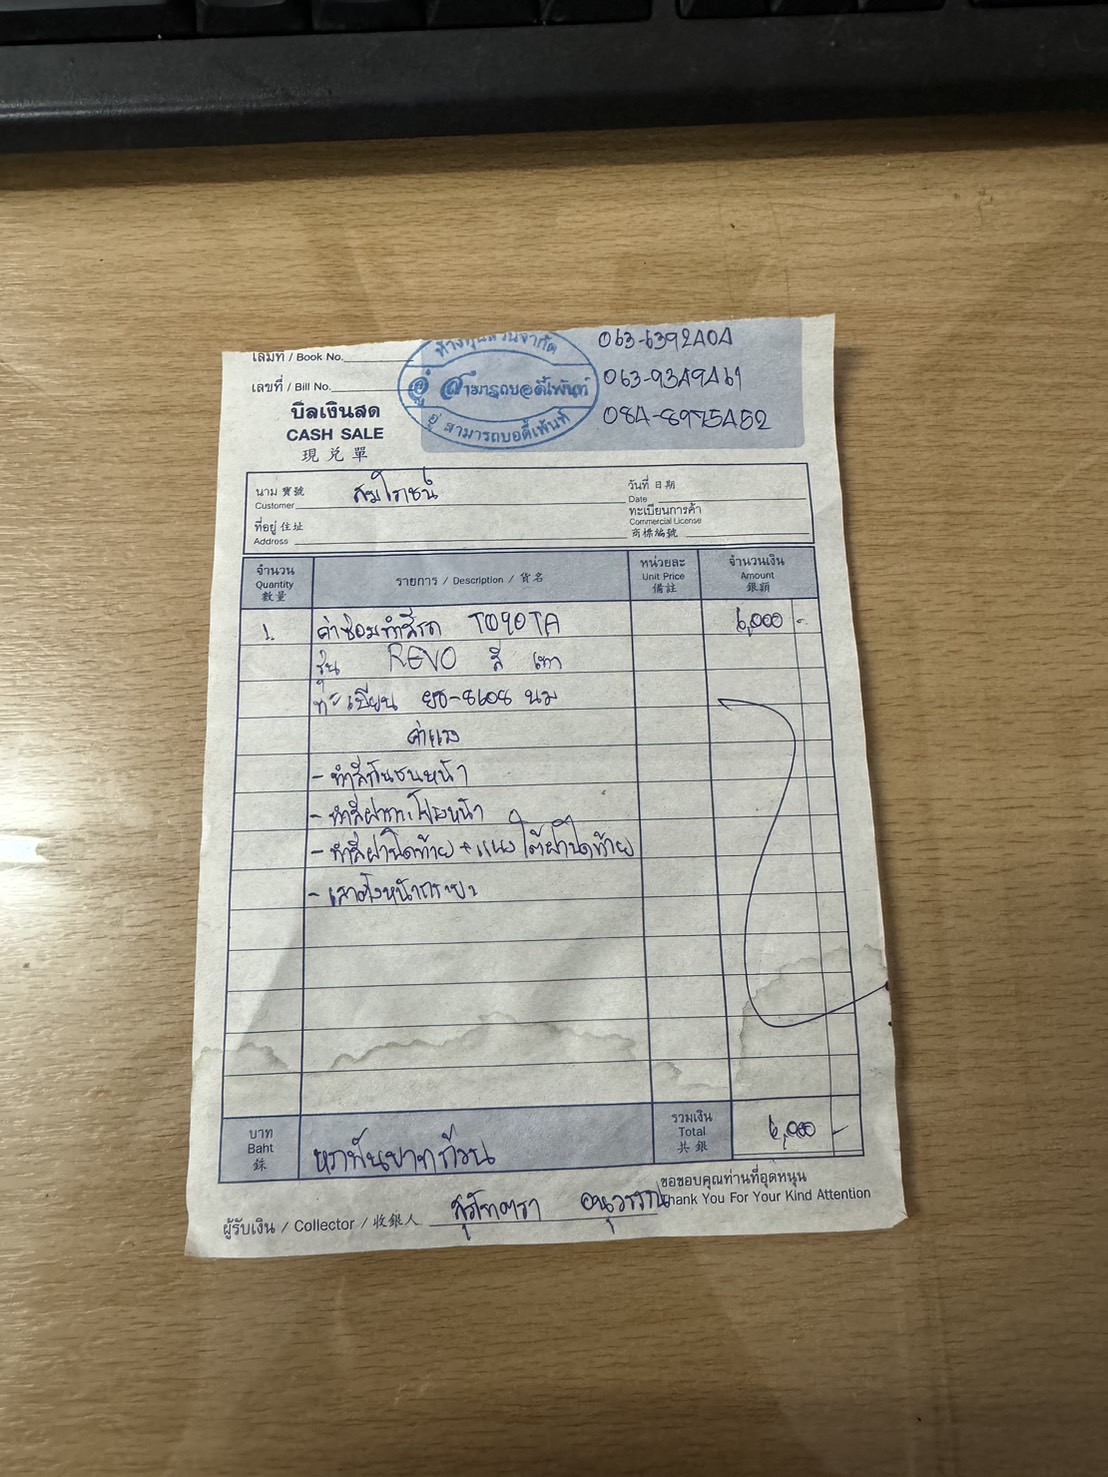 เล่มที่ / Book No.
ห้างหุ้นส่วนจำกัด
063-6392404
เลขที่ / Bill No.
อู่ สามารถบอดี้เพ้นท์
063-9349461
อู่ สามารถบอดี้เพ้นท์
084-8975452
บิลเงินสด
CASH SALE
現兌單
นาม 寶號 สมโภชน์
Customer
วันที่ 日期
Date
ที่อยู่ 住址
Address
ทะเบียนการค้า
Commercial License
商標編號
จำนวน
Quantity
數量
รายการ / Description / 貨名
หน่วยละ
Unit Price
備註
จำนวนเงิน
Amount
銀額
1. ค่าซ่อมทำสีรถ TOYOTA 6,000 -
รุ่น REVO สี เทา
ทะเบียน -8608 นม
ค่าแรง
- ทำสีกันชนหน้า
- ทำสีฝากระโปรงหน้า
- ทำสีฝาปิดท้าย + แผง ใต้ฝาปิดท้าย
- เสาตั้งหน้ากระบะ
บาท
Baht
銖
หกพันบาทถ้วน
รวมเงิน
Total
共銀
6,000 -
ขอขอบคุณท่านที่อุดหนุน
Thank You For Your Kind Attention
ผู้รับเงิน / Collector / 收銀人